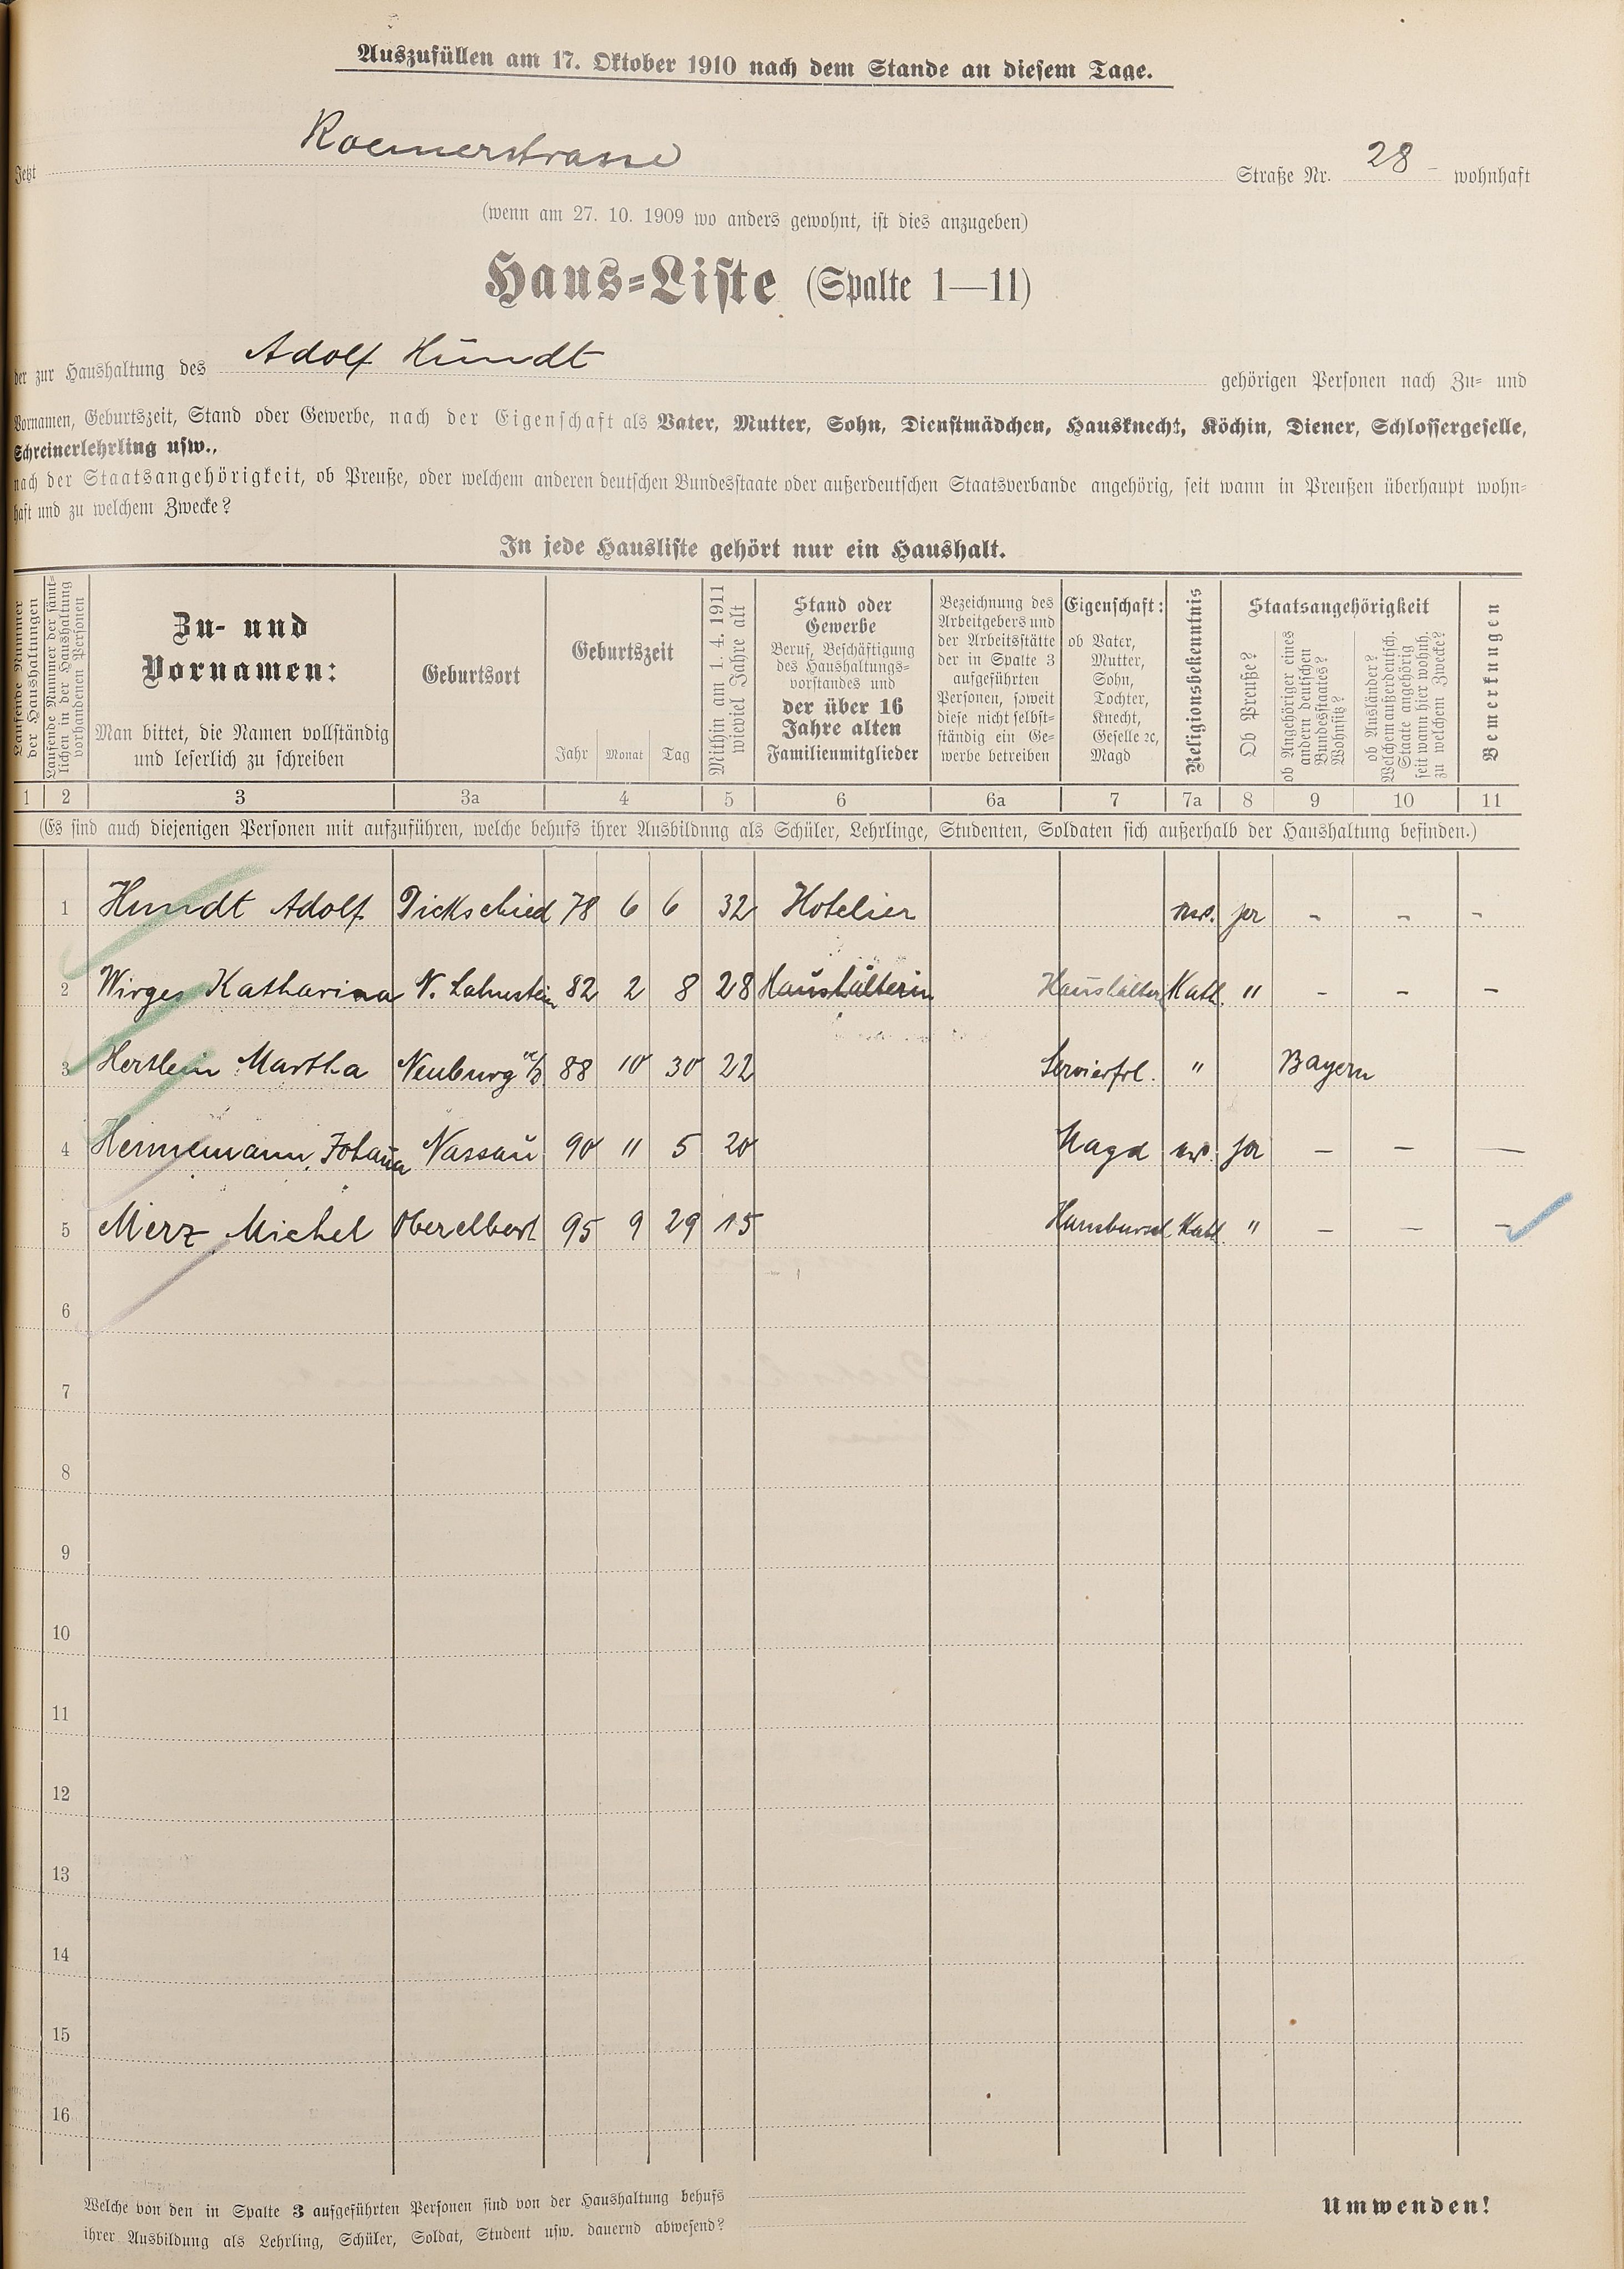 Auszufüllen am 17. Oktober 1910 nach dem Stande an diesem Tage.
Jetzt Roemerstrasse Straße Nr. 28 - wohnhaft
(wenn am 27. 10. 1909 wo anders gewohnt, ist dies anzugeben)
Haus-Liste (Spalte 1—11)
der zur Haushaltung des Adolf Hundt gehörigen Personen nach Zu- und
Vornamen, Geburtszeit, Stand oder Gewerbe, nach der Eigenschaft als Vater, Mutter, Sohn, Dienstmädchen, Hausknecht, Köchin, Diener, Schlossergeselle,
Schreinerlehrling usw.,
nach der Staatsangehörigkeit, ob Preuße, oder welchem anderen deutschen Bundesstaate oder außerdeutschen Staatsverbande angehörig, seit wann in Preußen überhaupt wohn-
haft und zu welchem Zwecke?
In jede Hausliste gehört nur ein Haushalt.
Laufende Nummer
der Haushaltungen
Laufende Nummer der sämt-
lichen in der Haushaltung
vorhandenen Personen
Zu- und
Vornamen:
Man bittet, die Namen vollständig
und leserlich zu schreiben
Geburtsort
Geburtszeit
Jahr Monat Tag
Mithin am 1. 4. 1911
wieviel Jahre alt
Stand oder
Gewerbe
Beruf, Beschäftigung
des Haushaltungs-
vorstandes und
der über 16
Jahre alten
Familienmitglieder
Bezeichnung des
Arbeitgebers und
der Arbeitsstätte
der in Spalte 3
aufgeführten
Personen, soweit
diese nicht selbst-
ständig ein Ge-
werbe betreiben
Eigenschaft:
ob Vater,
Mutter,
Sohn,
Tochter,
Knecht,
Geselle ꝛc,
Magd
Religionsbekenntnis
Staatsangehörigkeit
Ob Preuße?
ob Angehöriger eines
andern deutschen
Bundesstaates?
Wohnsitz?
ob Ausländer?
Welchem außerdeutsch.
Staate angehörig
seit wann hier wohnh.
zu welchem Zwecke?
Bemerkungen
1 2 3 3a 4 5 6 6a 7 7a 8 9 10 11
(Es sind auch diejenigen Personen mit aufzuführen, welche behufs ihrer Ausbildung als Schüler, Lehrlinge, Studenten, Soldaten sich außerhalb der Haushaltung befinden.)
1 Hundt Adolf Dickschied 78 6 6 32 Hotelier ja - - -
2 Wirges Katharina N. Lahnstein 82 2 8 28 Haushälterin Haushälter Kath. " - - -
3 Hertlein Martha Neuburg a/D 88 10 30 22 Servierfrl. " Bayern
4 Hennemann, Johanna Nassau 90 11 5 20 Magd ev. ja - - -
5 Merz, Michel Oberelbert 95 9 29 15 Hausbursch Kath. " - - -
6
7
8
9
10
11
12
13
14
15
16
Welche von den in Spalte 3 aufgeführten Personen sind von der Haushaltung behufs
ihrer Ausbildung als Lehrling, Schüler, Soldat, Student usw. dauernd abwesend?
Umwenden!